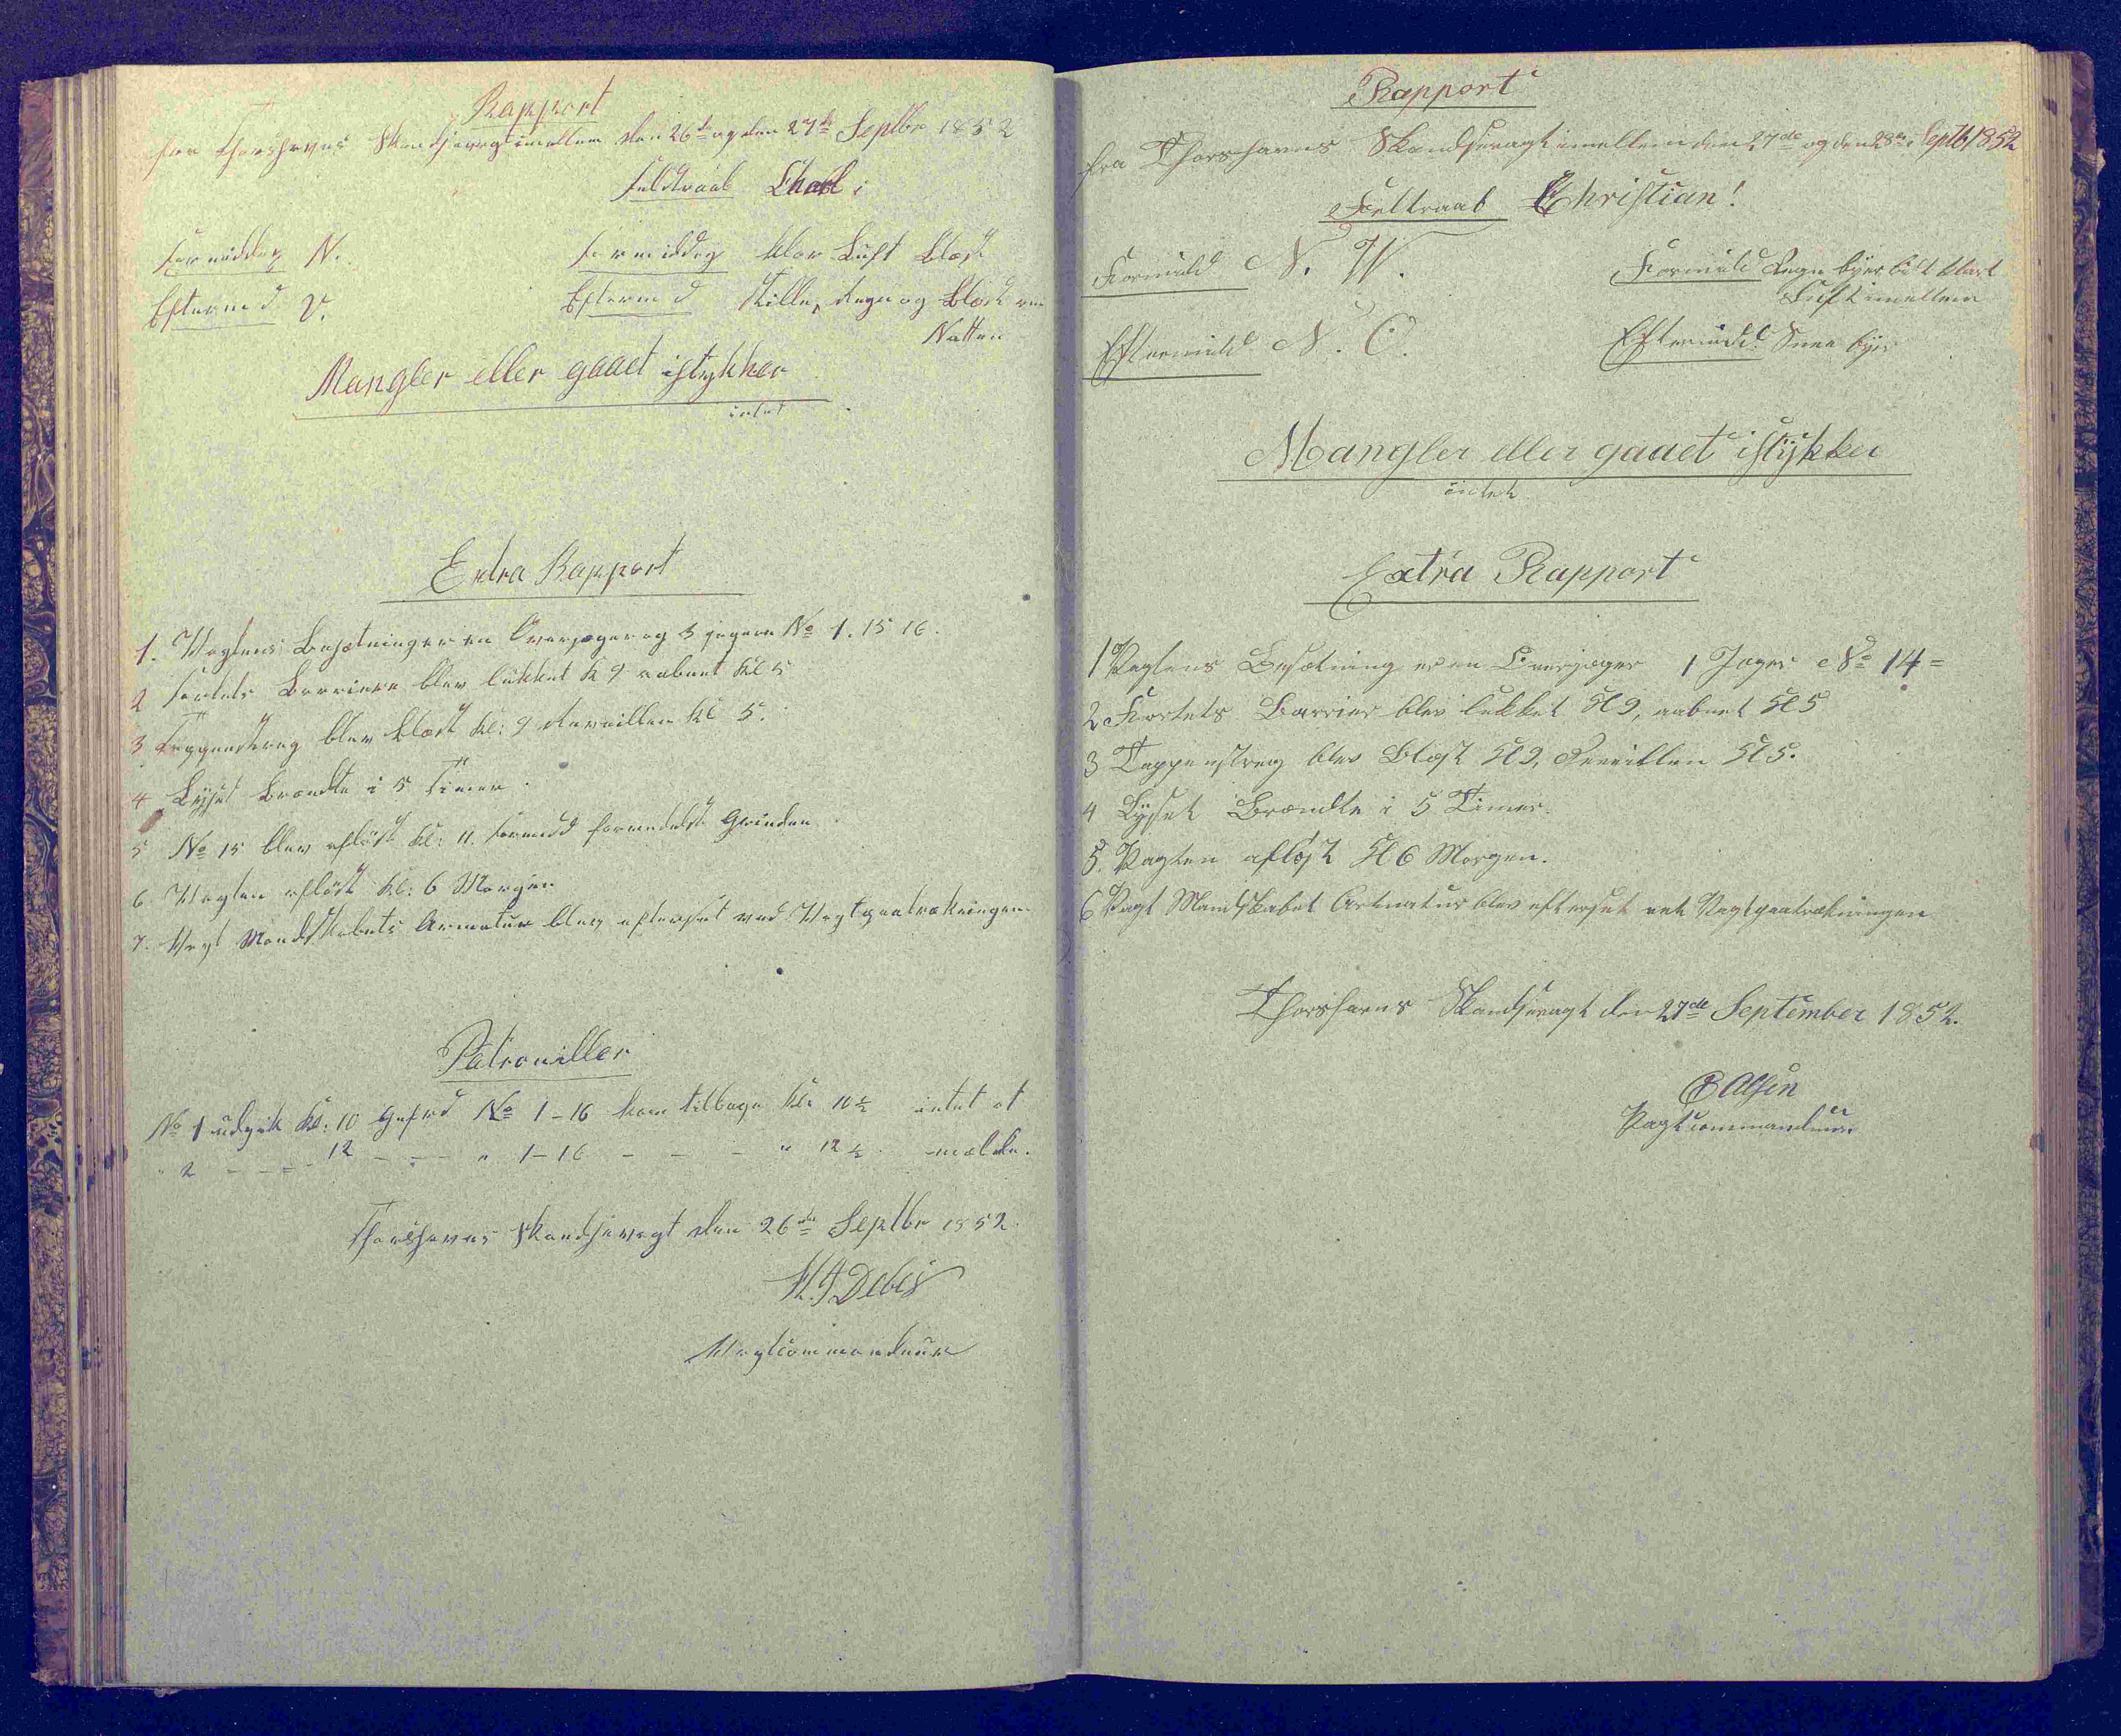 Rapport
fra Thorshavns Skandsevagt imellem den 26de og den 27de Septbr 1852
Feldtraab
Formiddag N. Formiddag klar Luft Blæst
Eftermd V. Eftermd Stille, Regn og Blæst om
Natten
Mangler eller gaaet istykker
intet
Extra Rapport
1. Vagtens Besætning er en Overjæger og 3 Jægere No 1. 15 16.
2 Fortets Barriere blev lukket Kl 9 aabnet Kl 5
3 Tappenstreg blev blæst Kl: 9 Reveillen Kl 5.
4 Lyset brændte i 5 Timer.
5 No 15 blev afløst Kl: 11. Formidd formedelst Grinden.
6 Vagten afløst Kl: 6 Morgen
7. Vagt Mandskabets Armatur blev efterset ved Vagtparatrækningen.
Patrouiller
No 1 udgik Kl: 10 Geferd No 1-16 kom tilbage Kl: 10½ intet at
" 2 - - - 12 - - - " 1-16 - - - " 12½. melde.
Thorshavns Skandsevagt den 26de Septbr 1852.
Debes
Vagtcommandeur
Rapport
fra Thorshavns Skandsevagt imellem den 27de og den 28de Septb 1852
Feltraab Christian!
Formidd N. W. Formidd Regn byer lidt klart
Luft imellem
Eftermidd N. O. Eftermidd. Snee byer
Mangler eller gaaet istykker
intet
Extra Rapport
1 Vagtens Besætning er en Overjæger 1 Jæger No 14=
2 Fortets Barrier blev lukket Kl 9, aabnet Kl 5
3 Tappenstreg blev Blæst Kl 9, Reveillen Kl 5.
4 Lyset Brændte i 5 Timer.
5. Vagten afløst Kl 6 Morgen.
6 Vagt Mandskabet Armatur blev efterset vet Vagtparatrækningen
Thorshavns Skandsevagt den 27de September 1852.
Olsen
Vagtcommandeur